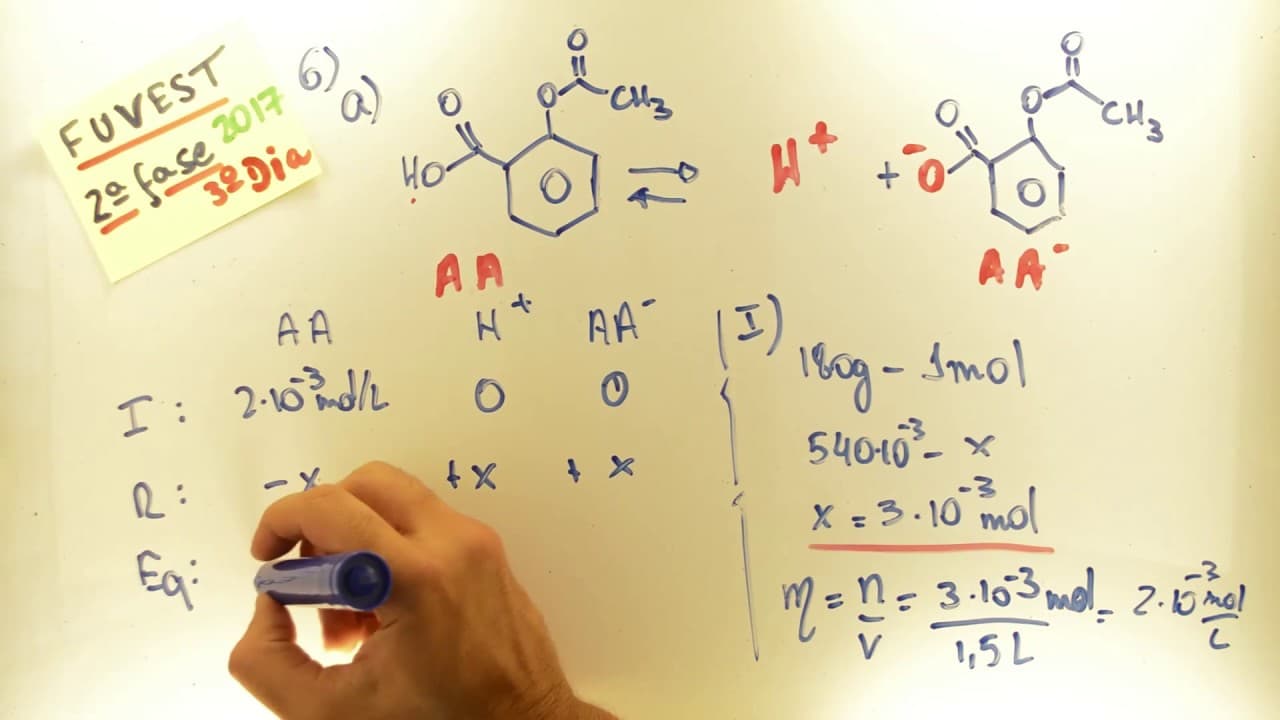 FUVEST
2ª fase 2017
3º Dia
6)
a)
O
O
O
CH3
HO
H+
+ -O
O
O
O
CH3
AA
AA-
AA H+ AA-
I: 2·10^-3 mol/L 0 0
R: -x +x +x
Eq:
(I)
180g - 1mol
540·10^-3 - x
x = 3·10^-3 mol
M = n/V = 3·10^-3 mol/1,5L = 2·10^-3 mol/L